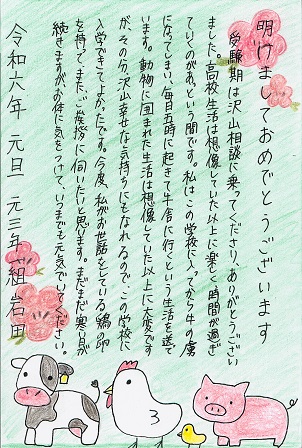 明けましておめでとうございます
受験期は沢山相談に乗ってくださり、ありがとうござい
ました。高校生活は想像していた以上に楽しく時間が過ぎ
ていくのがあっという間です。私はこの学校に入ってから牛の虜
になってしまい、毎日五時に起きて牛舎に行くという生活を送て
います。動物に囲まれた生活は想像していた以上に大変です
が、その分、沢山幸せな気持ちにもなれるので、この学校に
入学できてよかったです。今度、私がお世話をしている鶏の卵
を持って、また、ご挨拶に伺いたいと思います。まだまだ寒い日が
続きますがお体に気をつけて、いつまでも元気でいてください。
令和六年 元日 元三年 組 岩田